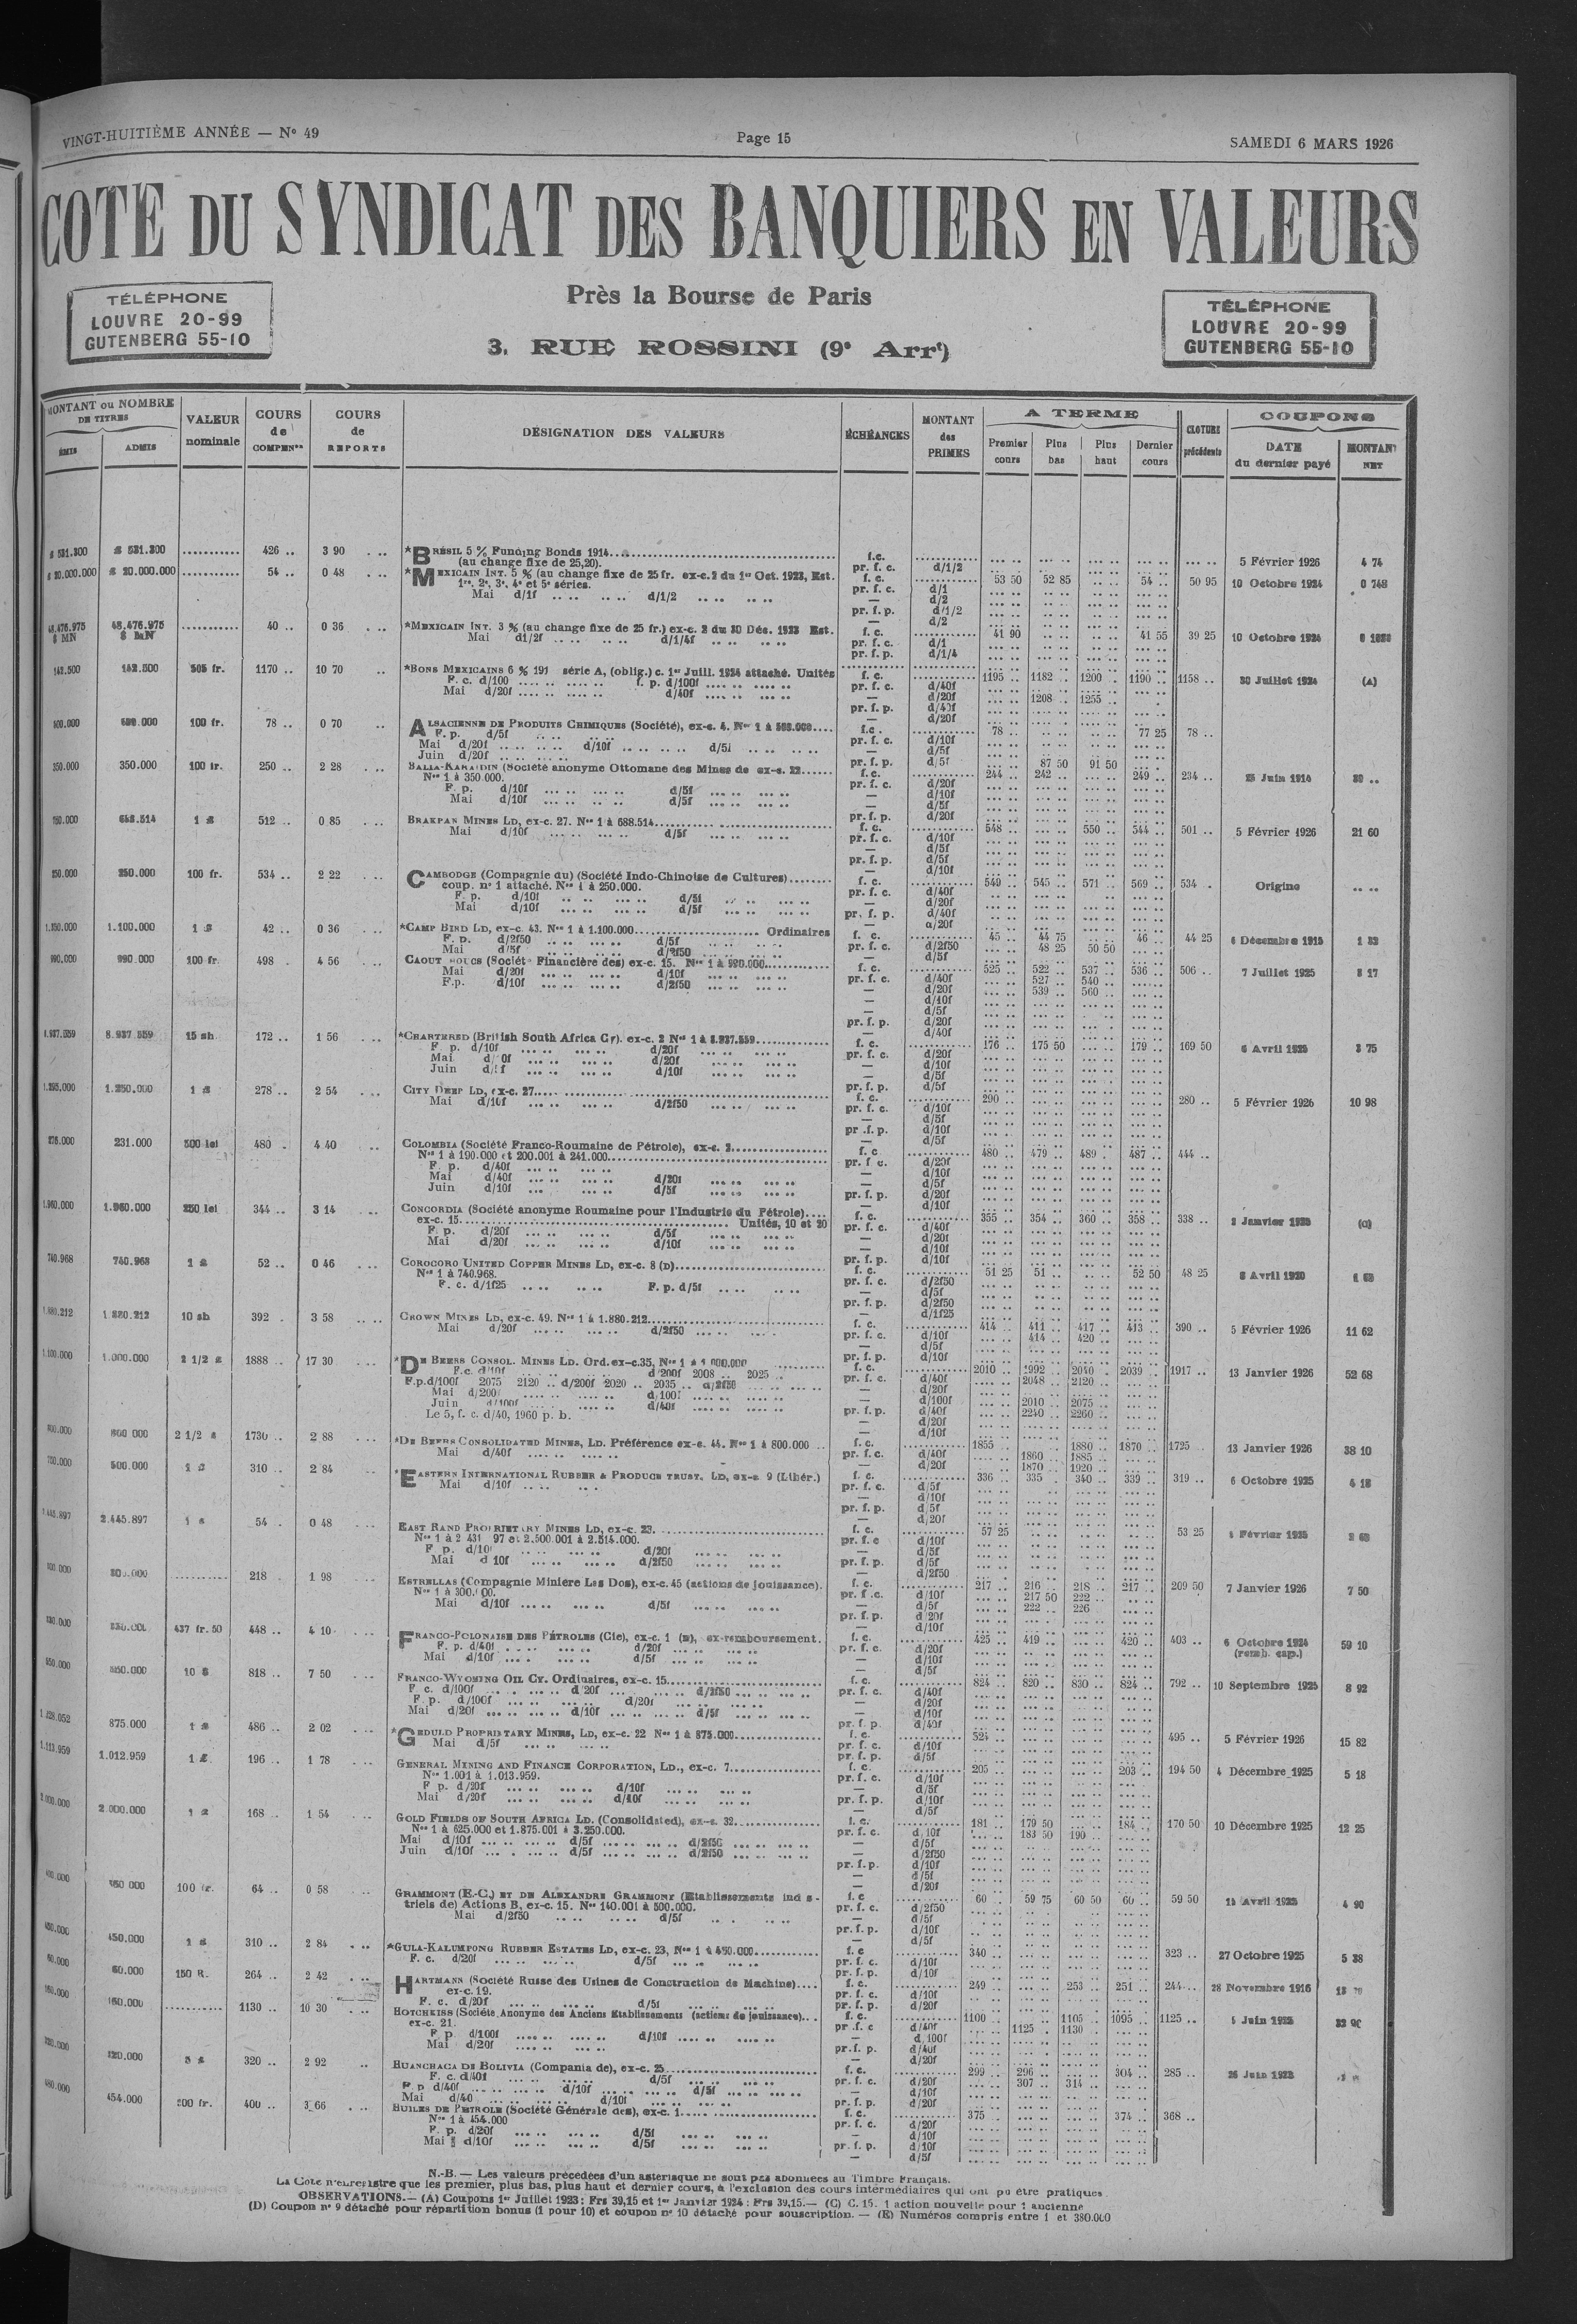 VINGT-HUITIÈME ANNÉE — N° 49
Page 15
SAMEDI 6 MARS 1926
COTE DU SYNDICAT DES BANQUIERS EN VALEURS
Près la Bourse de Paris
3, RUE ROSSINI (9e Arrt)
TÉLÉPHONE
LOUVRE 20-99
GUTENBERG 55-10
TÉLÉPHONE
LOUVRE 20-99
GUTENBERG 55-10
MONTANT ou NOMBRE DE TITRES
ÉMIS ADMIS
VALEUR nominale
COURS de COMPENon
COURS de REPORTS
DÉSIGNATION DES VALEURS
ÉCHÉANCES
MONTANT des PRIMES
A TERME
Premier cours Plus bas Plus haut Dernier cours
CLOTURE précédente
COUPONS
DATE du dernier payé
MONTANT NET
531.300 531.300 426 .. 3 90 *BRÉSIL 5 % Funding Bonds 1914 f.c. 5 Février 1926 4 74
(au change fixe de 25,20). pr. f. c. d/1/2
20.000.000 20.000.000 54 .. 0 48 *MEXICAIN INT. 5 % (au change fixe de 25 fr. ex-c. 2 du 1er Oct. 1923, Est. f. c. 53 50 52 85 54 .. 50 95 10 Octobre 1924 0 748
1re, 2e, 3e, 4e et 5e séries. pr. f. c. d/1
Mai d/1f d/1/2 — d/2
pr. f. p. d/1/2
— d/2
48.476.975 $ MN 48.476.975 $ MN 40 .. 0 36 *MEXICAIN INT. 3 % (au change fixe de 25 fr.) ex-c. 2 du 30 Déc. 1923 Est. f. c. 41 90 41 55 39 25 10 Octobre 1924
Mai d1/2f d/1/4f pr. f. c. d/1
pr. f. p. d/1/4
142.500 142.500 505 fr. 1170 .. 10 70 *BONS MEXICAINS 6 % 191 série A, (oblig.) c. 1er Juill. 1924 attaché. Unités f. c. 1195 .. 1182 .. 1200 .. 1190 .. 1158 .. 30 Juillet 1924 (A)
F. c. d/100 f. p. d/100f pr. f. c. d/40f
Mai d/20f d/40f — d/20f 1208 .. 1255 ..
pr. f. p. d/40f
— d/20f
600.000 100 fr. 78 .. 0 70 ALSACIENNE DE PRODUITS CHIMIQUES (Société), ex-c. 4. f.c. 78 .. 77 25 78 ..
F. p. d/5f pr. f. c. d/10f
Mai d/20f d/10f d/5f — d/5f
Juin d/20f pr. f. p. d/5f 87 50 91 50
350.000 350.000 100 fr. 250 .. 2 28 BALIA-KARAIDIN (Société anonyme Ottomane des Mines de ex-c. 22 f.c. 244 .. 242 .. 249 .. 234 .. 25 Juin 1914
Nos 1 à 350.000. pr. f. c. d/20f
F. p. d/10f d/5f — d/10f
Mai d/10f d/5f — d/5f
pr. f. p. d/20f
648.514 1 £ 512 .. 0 85 BRAKPAN MINES LD, ex-c. 27. Nos 1 à 688.514 f. c. 548 .. 550 .. 544 .. 501 .. 5 Février 1926 21 60
Mai d/10f d/5f pr. f. c. d/10f
— d/5f
pr. f. p. d/5f
— d/10f
250.000 250.000 100 fr. 534 .. 2 22 CAMBODGE (Compagnie du) (Société Indo-Chinoise de Cultures) f. c. 549 .. 545 .. 571 .. 569 .. 534 . Origine
coup. n° 1 attaché. Nos 1 à 250.000. pr. f. c. d/40f
F. p. d/10f d/5f — d/20f
Mai d/10f d/5f pr. f. p. d/40f
— d/20f
1.100.000 1 £ 42 .. 0 36 *CAMP BIRD LD, ex-c. 43. Nos 1 à 1.100.000 Ordinaires f. c. 45 .. 44 75 46 .. 44 25
F. p. d/2f50 d/5f pr. f. c. d/2f50 48 25 50 50
d/2f50 — d/5f
990.000 990.000 100 fr. 498 . 4 56 CAOUTCHOUCS (Société Financière des) ex-c. 15. Nos 1 à 990.000 f. c. 525 .. 522 .. 537 .. 536 .. 506 .. 7 Juillet 1925 8 17
Mai d/20f d/10f pr. f. c. d/40f 527 .. 540 ..
F.p. d/10f d/2f50 — d/20f 539 .. 560 ..
— d/10f
— d/5f
pr. f. p. d/20f
— d/40f
8.937.559 8.937.559 15 sh 172 .. 1 56 *CHARTERED (British South Africa Cy). ex-c. 2 Nos 1 à 8.937.559 f. c. 176 .. 175 50 179 .. 169 50 6 Avril 1925 3 75
F. p. d/10f d/20f pr. f. c. d/20f
Mai d/20f — d/10f
Juin d/10f — d/5f
pr. f. p. d/5f
1.295.000 1.250.000 1 £ 278 .. 2 54 CITY DEEP LD, ex-c. 27 f. c. 290 280 .. 5 Février 1926 10 98
Mai d/10f d/2f50 pr. f. c. d/10f
— d/5f
pr. f. p. d/10f
— d/5f
231.000 500 lei 480 . 4 40 COLOMBIA (Société Franco-Roumaine de Pétrole), ex-c. 2 f. c 480 .. 479 .. 489 . 487 .. 444 ..
Nos 1 à 190.000 et 200.001 à 241.000 pr. f c. d/20f
F. p. d/40f — d/10f
Mai d/40f d/20f — d/5f
Juin d/10f d/5f pr. f. p. d/20f
— d/10f
1.960.000 1.960.000 250 lei 344 .. 3 14 CONCORDIA (Société anonyme Roumaine pour l'Industrie du Pétrole) f. c. 355 .. 354 .. 360 .. 358 .. 338 .. (C)
ex-c. 15. Unités, 10 et 20 pr. f. c. d/40f
F. p. d/20f d/5f — d/20f
Mai d/20f d/10f — d/10f
pr. f. p. d/10f
740.968 740.968 1 £ 52 .. 0 46 COROCORO UNITED COPPER MINES LD, ex-c. 8 (D) f. c. 51 25 51 .. 52 50 48 25 8 Avril 1920
Nos 1 à 740.968. pr. f. c. d/2f50
F. c. d/1f25 F. p. d/5f — d/5f
pr. f. p. d/2f50
— d/1f25
1.880.212 1.880.212 10 sh 392 . 3 58 CROWN MINES LD, ex-c. 49. Nos 1 à 1.880.212 f. c. 414 .. 411 .. 417 .. 413 .. 390 .. 5 Février 1926 11 62
Mai d/20f d/2f50 pr. f. c. d/10f 414 .. 420 ..
— d/5f
pr. f. p. d/10f
1.000.000 2 1/2 £ 1888 .. 17 30 *DE BEERS CONSOL. MINES LD. Ord. ex-c. 35, Nos 1 à 1.000.000 f. c. 2010 .. 1992 .. 2040 .. 2039 .. 1917 .. 13 Janvier 1926 52 68
F.c. d/10f d/200f 2008 .. 2025 .. pr. f. c. d/40f 2048 .. 2120 ..
F.p. d/100f 2075 2120 .. d/200f 2020 .. 2035 .. d/2f50 — d/20f
Mai d/200f d/100f — d/100f 2010 .. 2075 ..
Juin d/100f d/40f pr. f. p. d/40f 2240 .. 2260 ..
Le 5, f. c. d/40, 1960 p. b. — d/20f
— d/10f
800.000 2 1/2 £ 1730 .. 2 88 *DE BEERS CONSOLIDATED MINES, LD. Préférence ex-c. 44. Nos 1 à 800.000 f. c. 1855 .. 1880 .. 1870 .. 1725 .. 13 Janvier 1926 38 10
Mai d/40f pr. f. c. d/40f 1860 .. 1885 ..
— d/20f 1870 .. 1920 ..
500.000 1 £ 310 .. 2 84 *EASTERN INTERNATIONAL RUBBER & PRODUCE TRUST, LD, ex-c. 9 (Libér.) f. c. 336 .. 335 . 340 .. 339 .. 319 .. 6 Octobre 1925 4 18
Mai d/10f pr. f. c. d/5f
— d/10f
pr. f. p. d/5f
— d/20f
2.445.897 1 £ 54 . 0 48 EAST RAND PROPRIETARY MINES LD, ex-c. 23. f. c. 57 25 53 25
Nos 1 à 2 431 97 et 2.500.001 à 2.514.000. pr. f. c d/10f
F. p. d/10f d/20f — d/5f
Mai d 10f d/2f50 pr. f. p. d/5f
— d/2f50
218 . 1 98 ESTRELLAS (Compagnie Minière Las Dos), ex-c. 45 (actions de jouissance). f. c. 217 .. 216 .. 218 .. 217 .. 209 50 7 Janvier 1926 7 50
Nos 1 à 300.000. pr. f .c. d/10f 217 50 222 ..
Mai d/10f d/5f — d/5f 222 .. 226
pr. f. p. d 20f
— d/10f
437 fr. 50 448 .. 4 10 FRANCO-POLONAISE DES PÉTROLES (Cie), ex-c. 1 (E), ex-remboursement. f. c. 425 .. 419 .. 420 .. 403 .. 6 Octobre 1924 59 10
(remb. cap.)
F. p. d/40f d/20f pr. f. c. d/20f
Mai d/10f d/5f — d/10f
— d/5f
850.000 10 $ 818 .. 7 50 FRANCO-WYOMING OIL CY. Ordinaires, ex-c. 15 f. c. 824 .. 820 .. 830 .. 824 .. 792 .. 10 Septembre 1925 8 92
F. c. d/100f d 20f d/2f50 pr. f. c. d/40f
F. p. d/100f d/20f — d/20f
Mai d/20f d/10f d/5f — d/10f
pr. f. p. d/40f
875.000 1 £ 486 .. 2 02 *GEDULD PROPRIETARY MINES, LD, ex-c. 22 Nos 1 à 875.000 f. c. 524 495 .. 5 Février 1926 15 82
Mai d/5f pr. f. c. d/10f
pr. f. p. d/5f
1.113.959 1.012.959 1 £ 196 .. 1 78 GENERAL MINING AND FINANCE CORPORATION, LD., ex-c. 7 f. c. 205 203 .. 194 50 4 Décembre 1925 5 18
Nos 1.001 à 1.013.959. pr. f. c. d/10f
F. p. d/20f d/10f — d/5f
Mai d/20f d/10f pr. f. p. d/10f
— d/5f
2.000.000 2.000.000 1 £ 168 .. 1 54 GOLD FIELDS OF SOUTH AFRICA LD. (Consolidated), ex-c. 32 f. c. 181 .. 179 50 184 .. 170 50 10 Décembre 1925 12 25
Nos 1 à 625.000 et 1.875.001 à 3.250.000. pr. f. c. d/10f 183 50 190 ..
Mai d/10f d/5f d/2f50 — d/5f
Juin d/10f d/5f d/2f50 — d/2f50
pr. f.p. d/10f
— d/5f
— d/20f
100 fr. 64 .. 0 58 GRAMMONT (E.-C.) ET DE ALEXANDRE GRAMMONT (Etablissements ind s - f. c 60 .. 59 75 60 50 60 .. 59 50 4 90
triels de) Actions B, ex-c. 15. Nos 140.001 à 500.000. pr. f. c. d/2f50
Mai d/2f50 d/5f — d/5f
pr. f. p. d/10f
— d/5f
450.000 1 £ 310 .. 2 84 *GULA-KALUMPONG RUBBER ESTATES LD, ex-c. 23, Nos 1 à 450.000 f. c 340 323 .. 27 Octobre 1925 5 38
F. c. d/20f d/5f pr. f. c. d/10f
pr. f. p. d/10f
60.000 60.000 150 R. 264 .. 2 42 HARTMANN (Société Russe des Usines de Construction de Machine) f. c. 249 .. 253 .. 251 .. 244 .. 28 Novembre 1916
ex-c. 19. pr. f. c. d/10f
F. c. d/20f d/5f pr. f. p. d/20f
160.000 1130 .. 10 30 HOTCHKISS (Société Anonyme des Anciens Etablissements (actions de jouissance) f. c. 1100 .. 1105 .. 1095 .. 1125 ..
ex-c. 21. pr .f. c d/40f 1125 . 1130 ..
F. p. d/100f d/10f — d/100f
Mai d/20f pr.f. p. d/40f
— d/20f
320.000 5 £ 320 .. 2 92 HUANCHACA DE BOLIVIA (Compania de), ex-c. 25 f. c. 299 .. 296 .. 304 .. 285 ..
F. c. d/40f d/5f pr. f. c. d/20f 307 .. 314 ..
F. p d/40f d/10f d/5f — d/10f
Mai d/40 d/10f pr. f. p. d/20f
454.000 500 fr. 400 .. 3 66 HUILES DE PÉTROLE (Société Générale des), ex-c. 1 f. c. 375 374 .. 368 ..
Nos 1 à 454.000 pr. f. c. d/20f
F. p. d/20f d/5f — d/10f
Mai d/10f d/5f pr. f. p. d/10f
— d/5f
N.-B. — Les valeurs précédées d'un astérisque ne sont pas abonnées au Timbre Français.
La Cote n'enregistre que les premier, plus bas, plus haut et dernier cours, à l'exclusion des cours intermédiaires qui ont pu être pratiqués.
OBSERVATIONS.— (A) Coupons 1er Juillet 1923 : Frs 39,15 et 1er Janvier 1924 : Frs 39,15.— (C) C. 15. 1 action nouvelle pour 1 ancienne
(D) Coupon n° 9 détaché pour répartition bonus (1 pour 10) et coupon n° 10 détaché pour souscription. — (E) Numéros compris entre 1 et 380.000